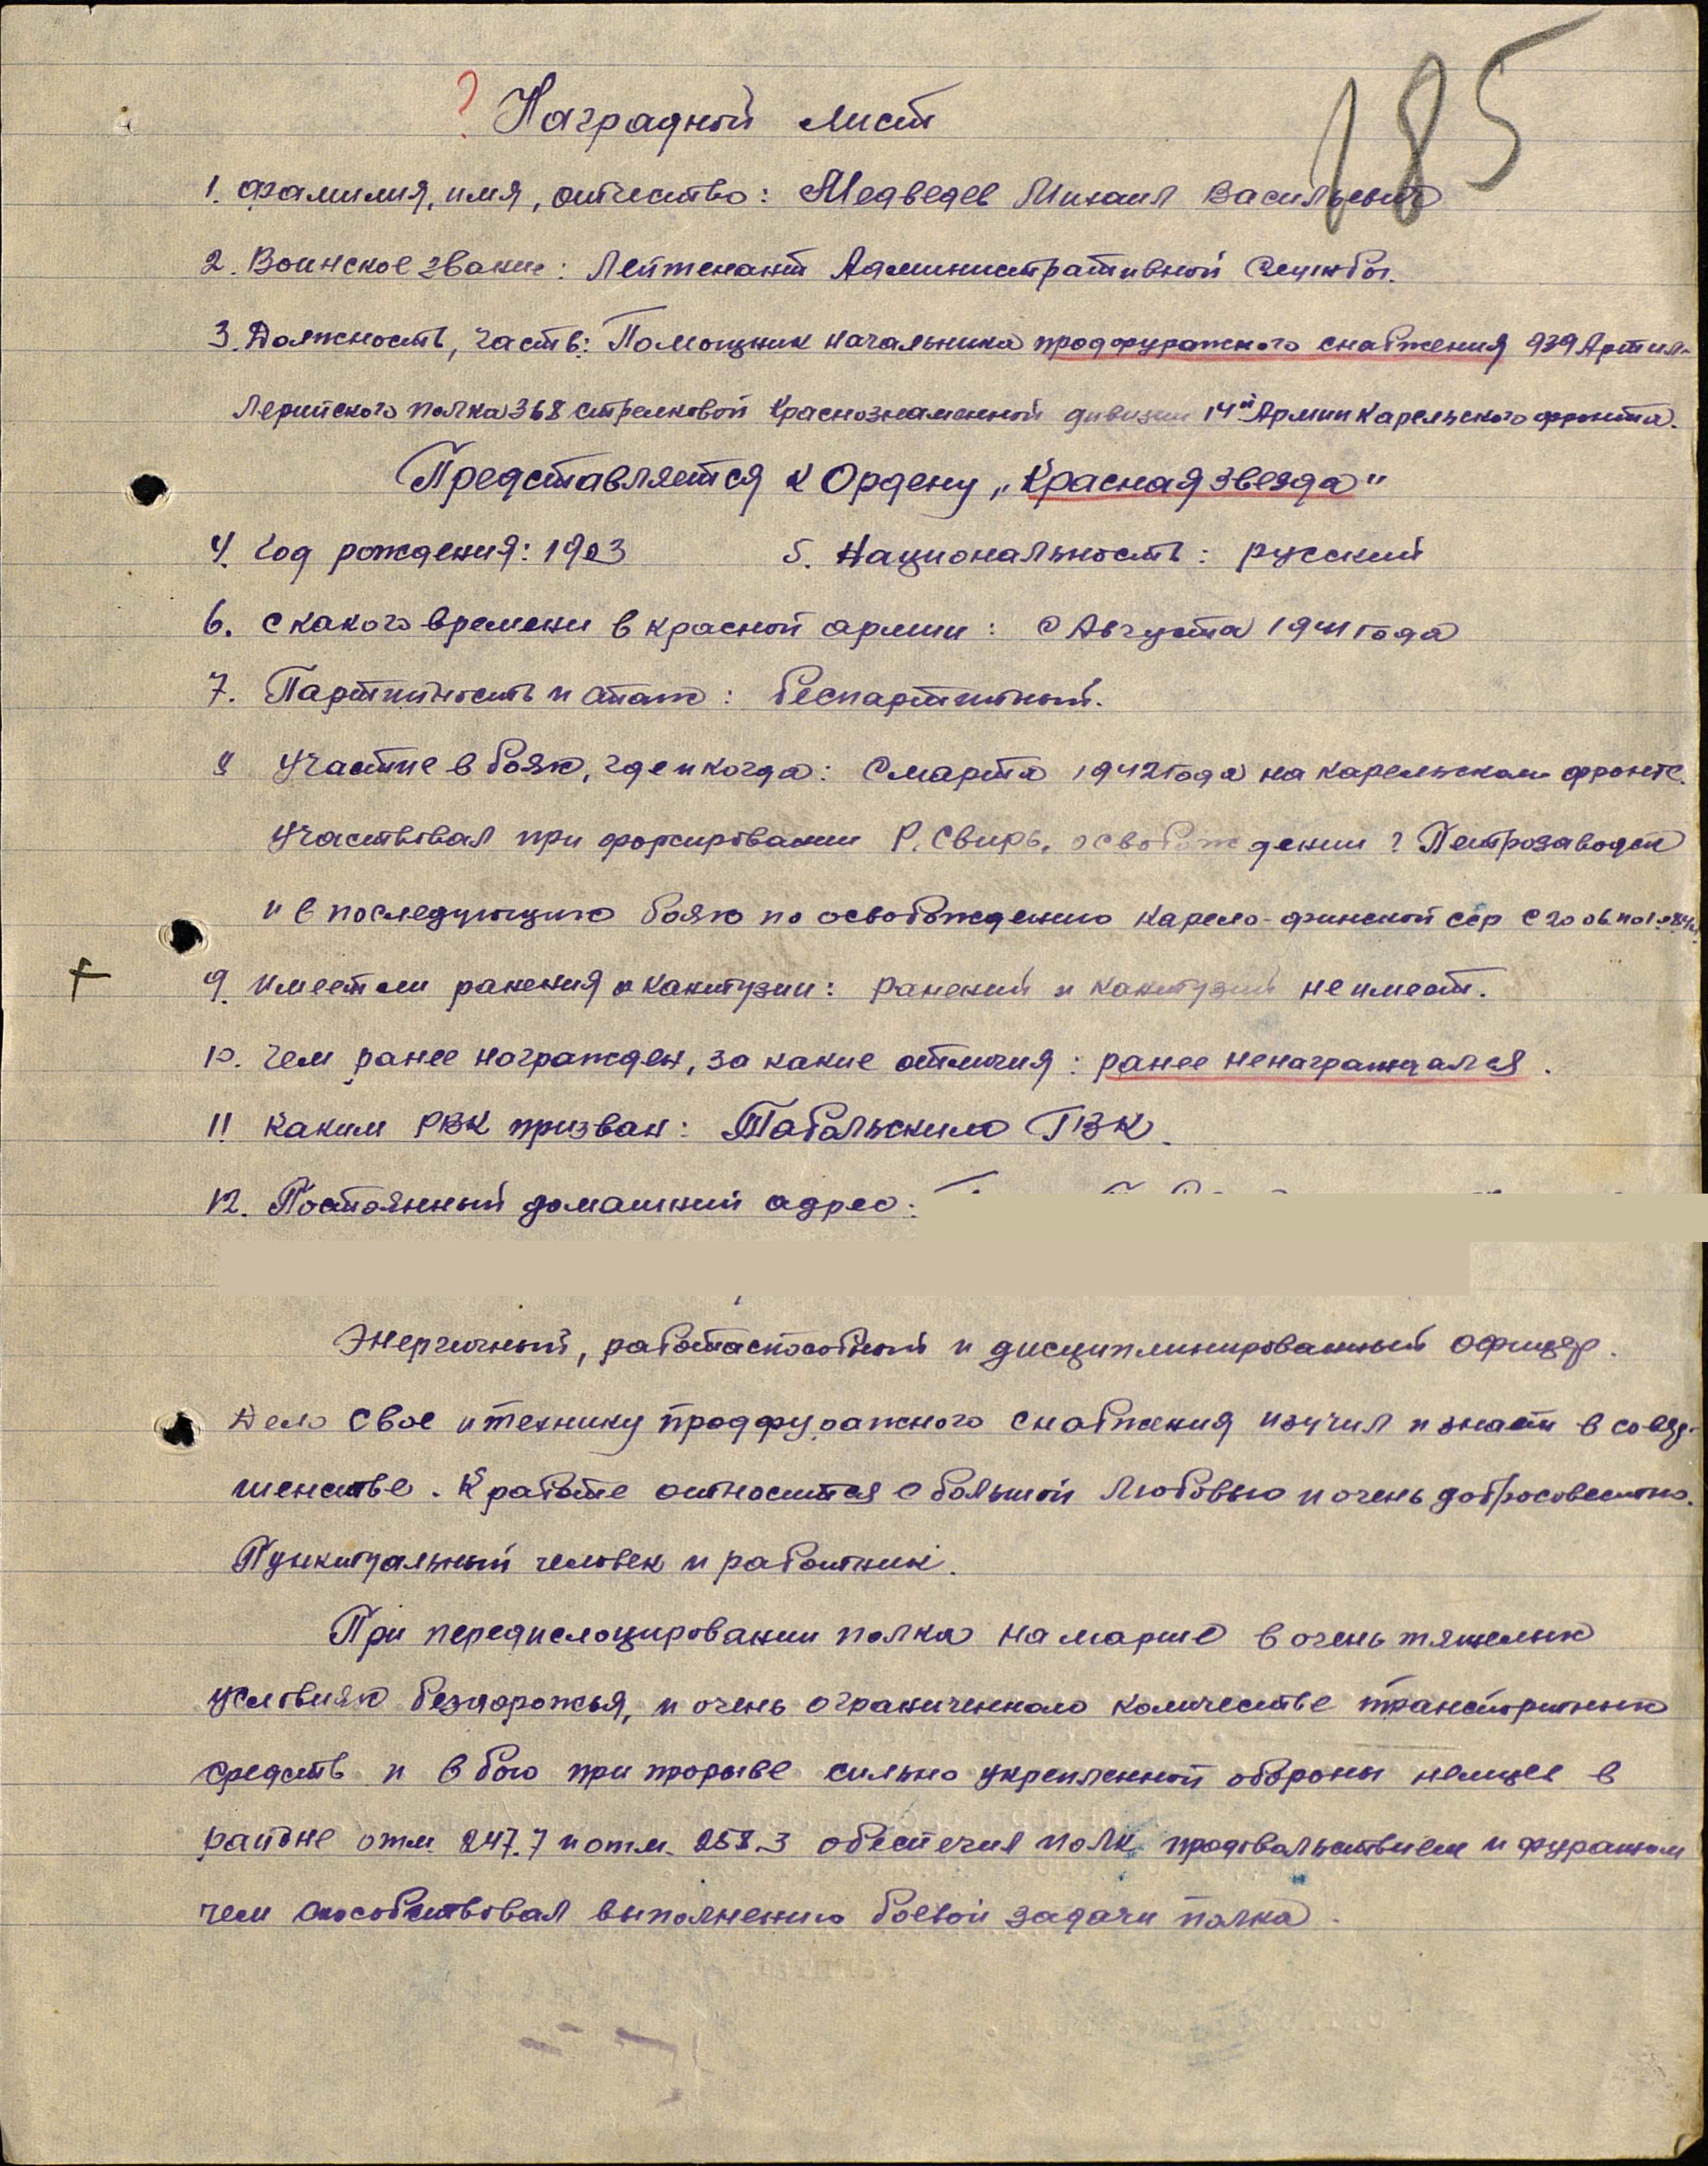 185
? Наградной лист
1. Фамилия, имя, отчество: Медведев Михаил Васильевич
2. Воинское звание: Лейтенант Административной Службы.
3. Должность, часть: Помощник начальника продфуражного снабжения 939 Артил-
лерийского полка 368 стрелковой Краснознаменной дивизии 14й Армии Карельского фронта.
Представляется к Ордену „Красная звезда"
4. Год рождения: 1903 5. Национальность: русский
6. с какого времени в красной армии: с Августа 1941 года
7. Партийность и стаж: беспартийный.
8 Участие в боях, где и когда: с марта 1942 года на карельском фронте.
участвовал при форсировании Р. Свирь, освобождении г Петрозаводск
и в последующих боях по освобождению Карело-финской сср с 20 06 по
9. имеет ли ранения и контузии: ранений и контузий не имеет.
10. Чем ранее награжден, за какие отличия: ранее ненаграждался.
11 Каким РВК призван: Табольским ГВК.
12. Постоянный домашний адрес:
Энергичный, работаспособный и дисциплинированный офицер.
Дело свое и технику продфуражного снабжения изучил и знает в совер-
шенстве. К работе относится с большой любовью и очень добросовестно.
Пунктуальный человек и работник.
При передислоцировании полка на марше в очень тяжелых
условиях бездорожья, и очень ограниченном количестве транспортных
средств и в бою при прорыве сильно укрепленной обороны немцев в
районе отм. 247.7 и отм. 258.3 обеспечил полк продовальствием и фуражом
чем способствовал выполнению боевой задачи полка.